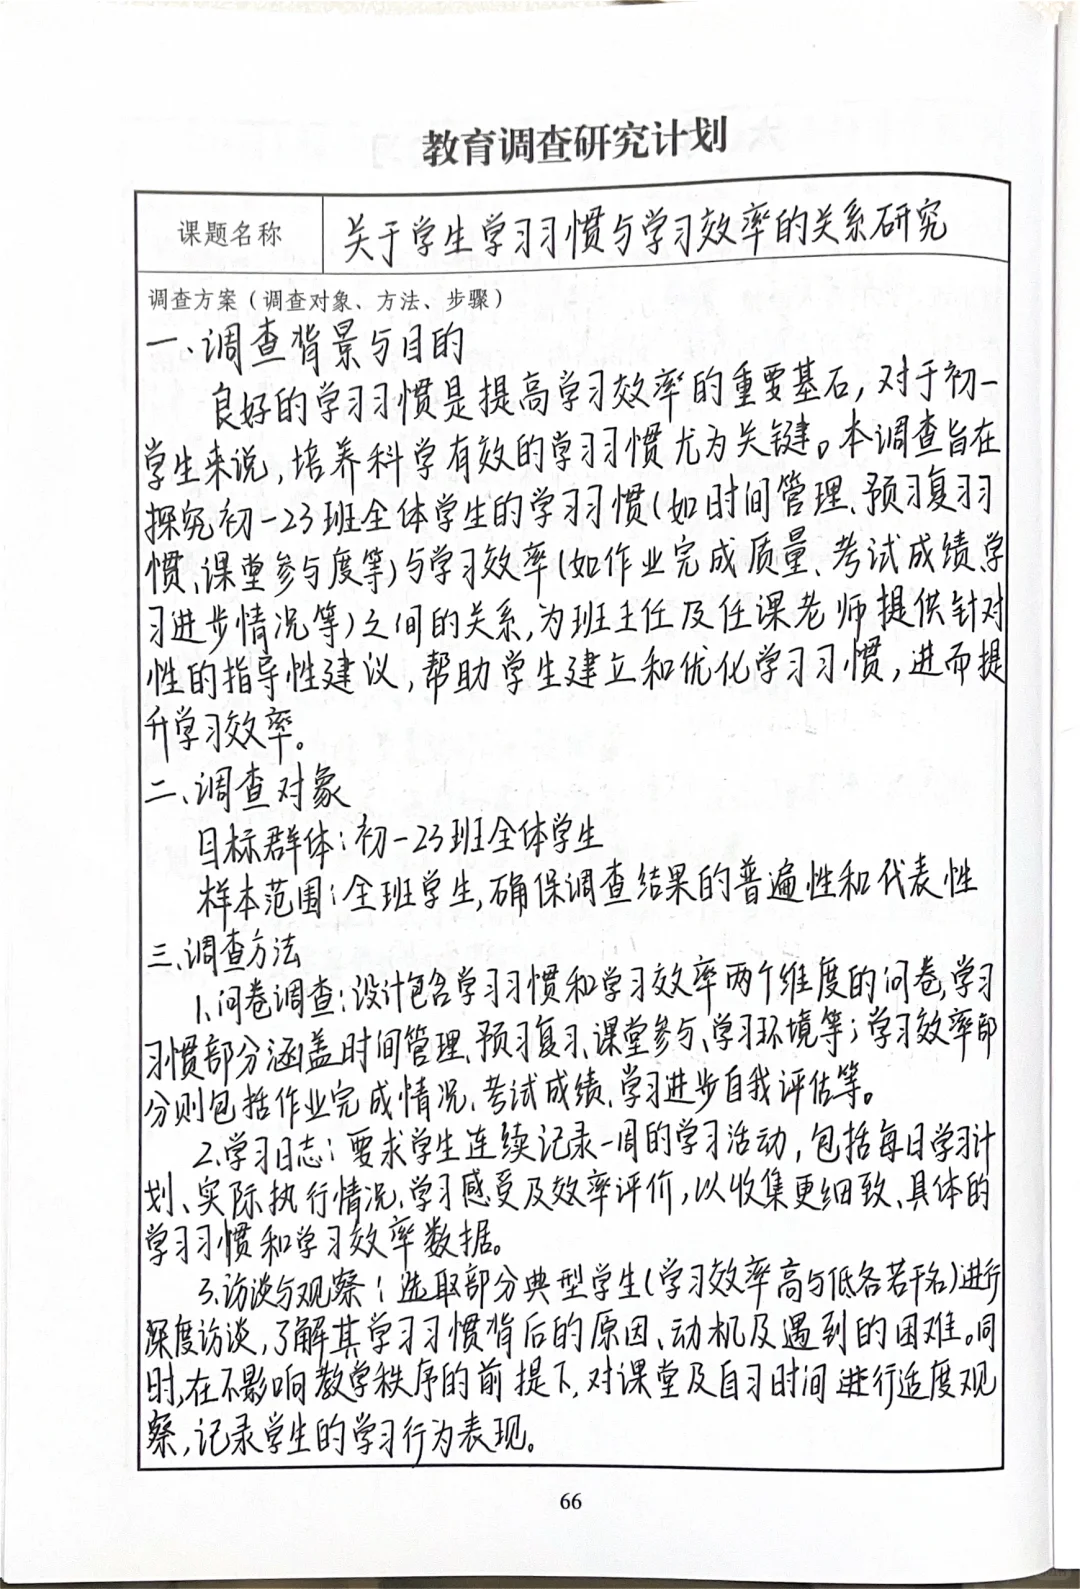 教育调查研究计划
课题名称
关于学生学习习惯与学习效率的关系研究
调查方案（调查对象、方法、步骤）
一、调查背景与目的
良好的学习习惯是提高学习效率的重要基石，对于初一
学生来说，培养科学有效的学习习惯尤为关键。本调查旨在
探究初一23班全体学生的学习习惯（如时间管理、预习复习习
惯、课堂参与度等）与学习效率（如作业完成质量、考试成绩、学
习进步情况等）之间的关系，为班主任及任课老师提供针对
性的指导性建议，帮助学生建立和优化学习习惯，进而提
升学习效率。
二、调查对象
目标群体：初一23班全体学生
样本范围：全班学生，确保调查结果的普遍性和代表性
三、调查方法
1.问卷调查：设计包含学习习惯和学习效率两个维度的问卷，学习
习惯部分涵盖时间管理、预习复习、课堂参与、学习环境等；学习效率部
分则包括作业完成情况、考试成绩、学习进步自我评估等。
2.学习日志：要求学生连续记录一周的学习活动，包括每日学习计
划、实际执行情况、学习感受及效率评价，以收集更细致、具体的
学习习惯和学习效率数据。
3.访谈与观察：选取部分典型学生（学习效率高与低各若干名）进行
深度访谈，了解其学习习惯背后的原因、动机及遇到的困难。同
时，在不影响教学秩序的前提下，对课堂及自习时间进行适度观
察，记录学生的学习行为表现。
66